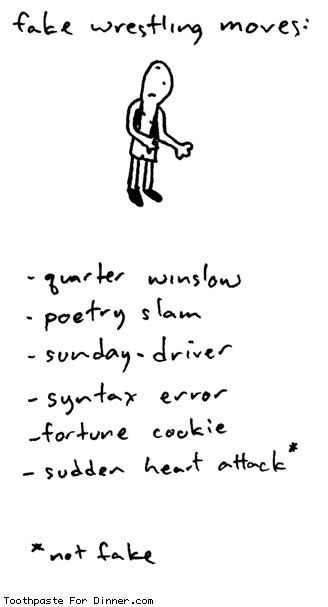 fake wrestling moves:
- quarter winslow
- poetry slam
- sunday-driver
- syntax error
- fortune cookie
- sudden heart attack*
*not fake
Toothpaste For Dinner.com